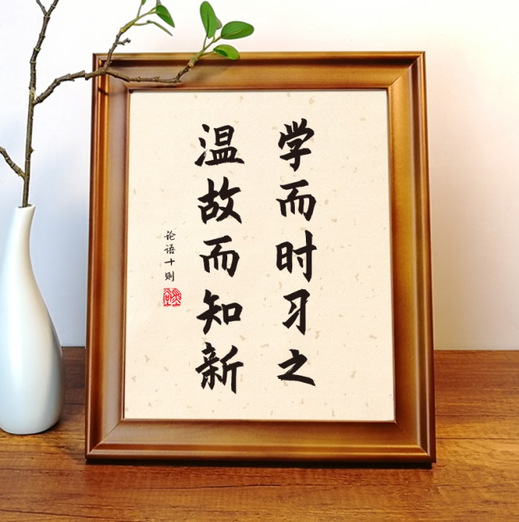 学而时习之
温故而知新
论语十则